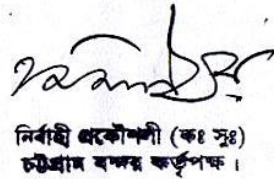 নির্বাহী প্রকৌশলী (কঃ সুঃ)
চট্টগ্রাম বন্দর কর্তৃপক্ষ।